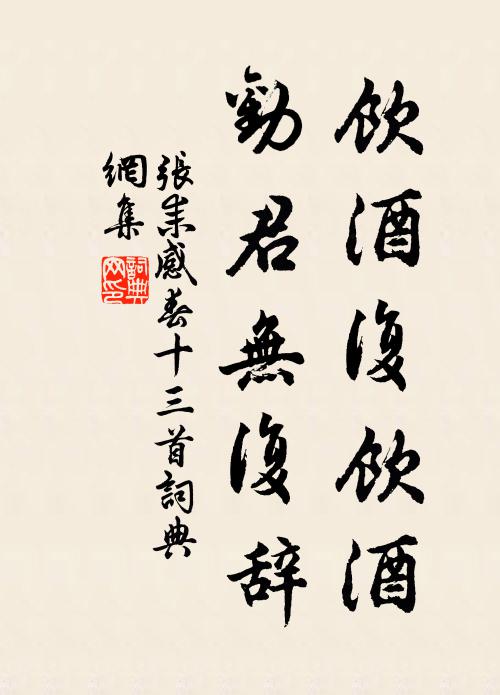 飲酒復飲酒
勸君無復辞
張耒感春十三首詞典
網集
詞典
网印